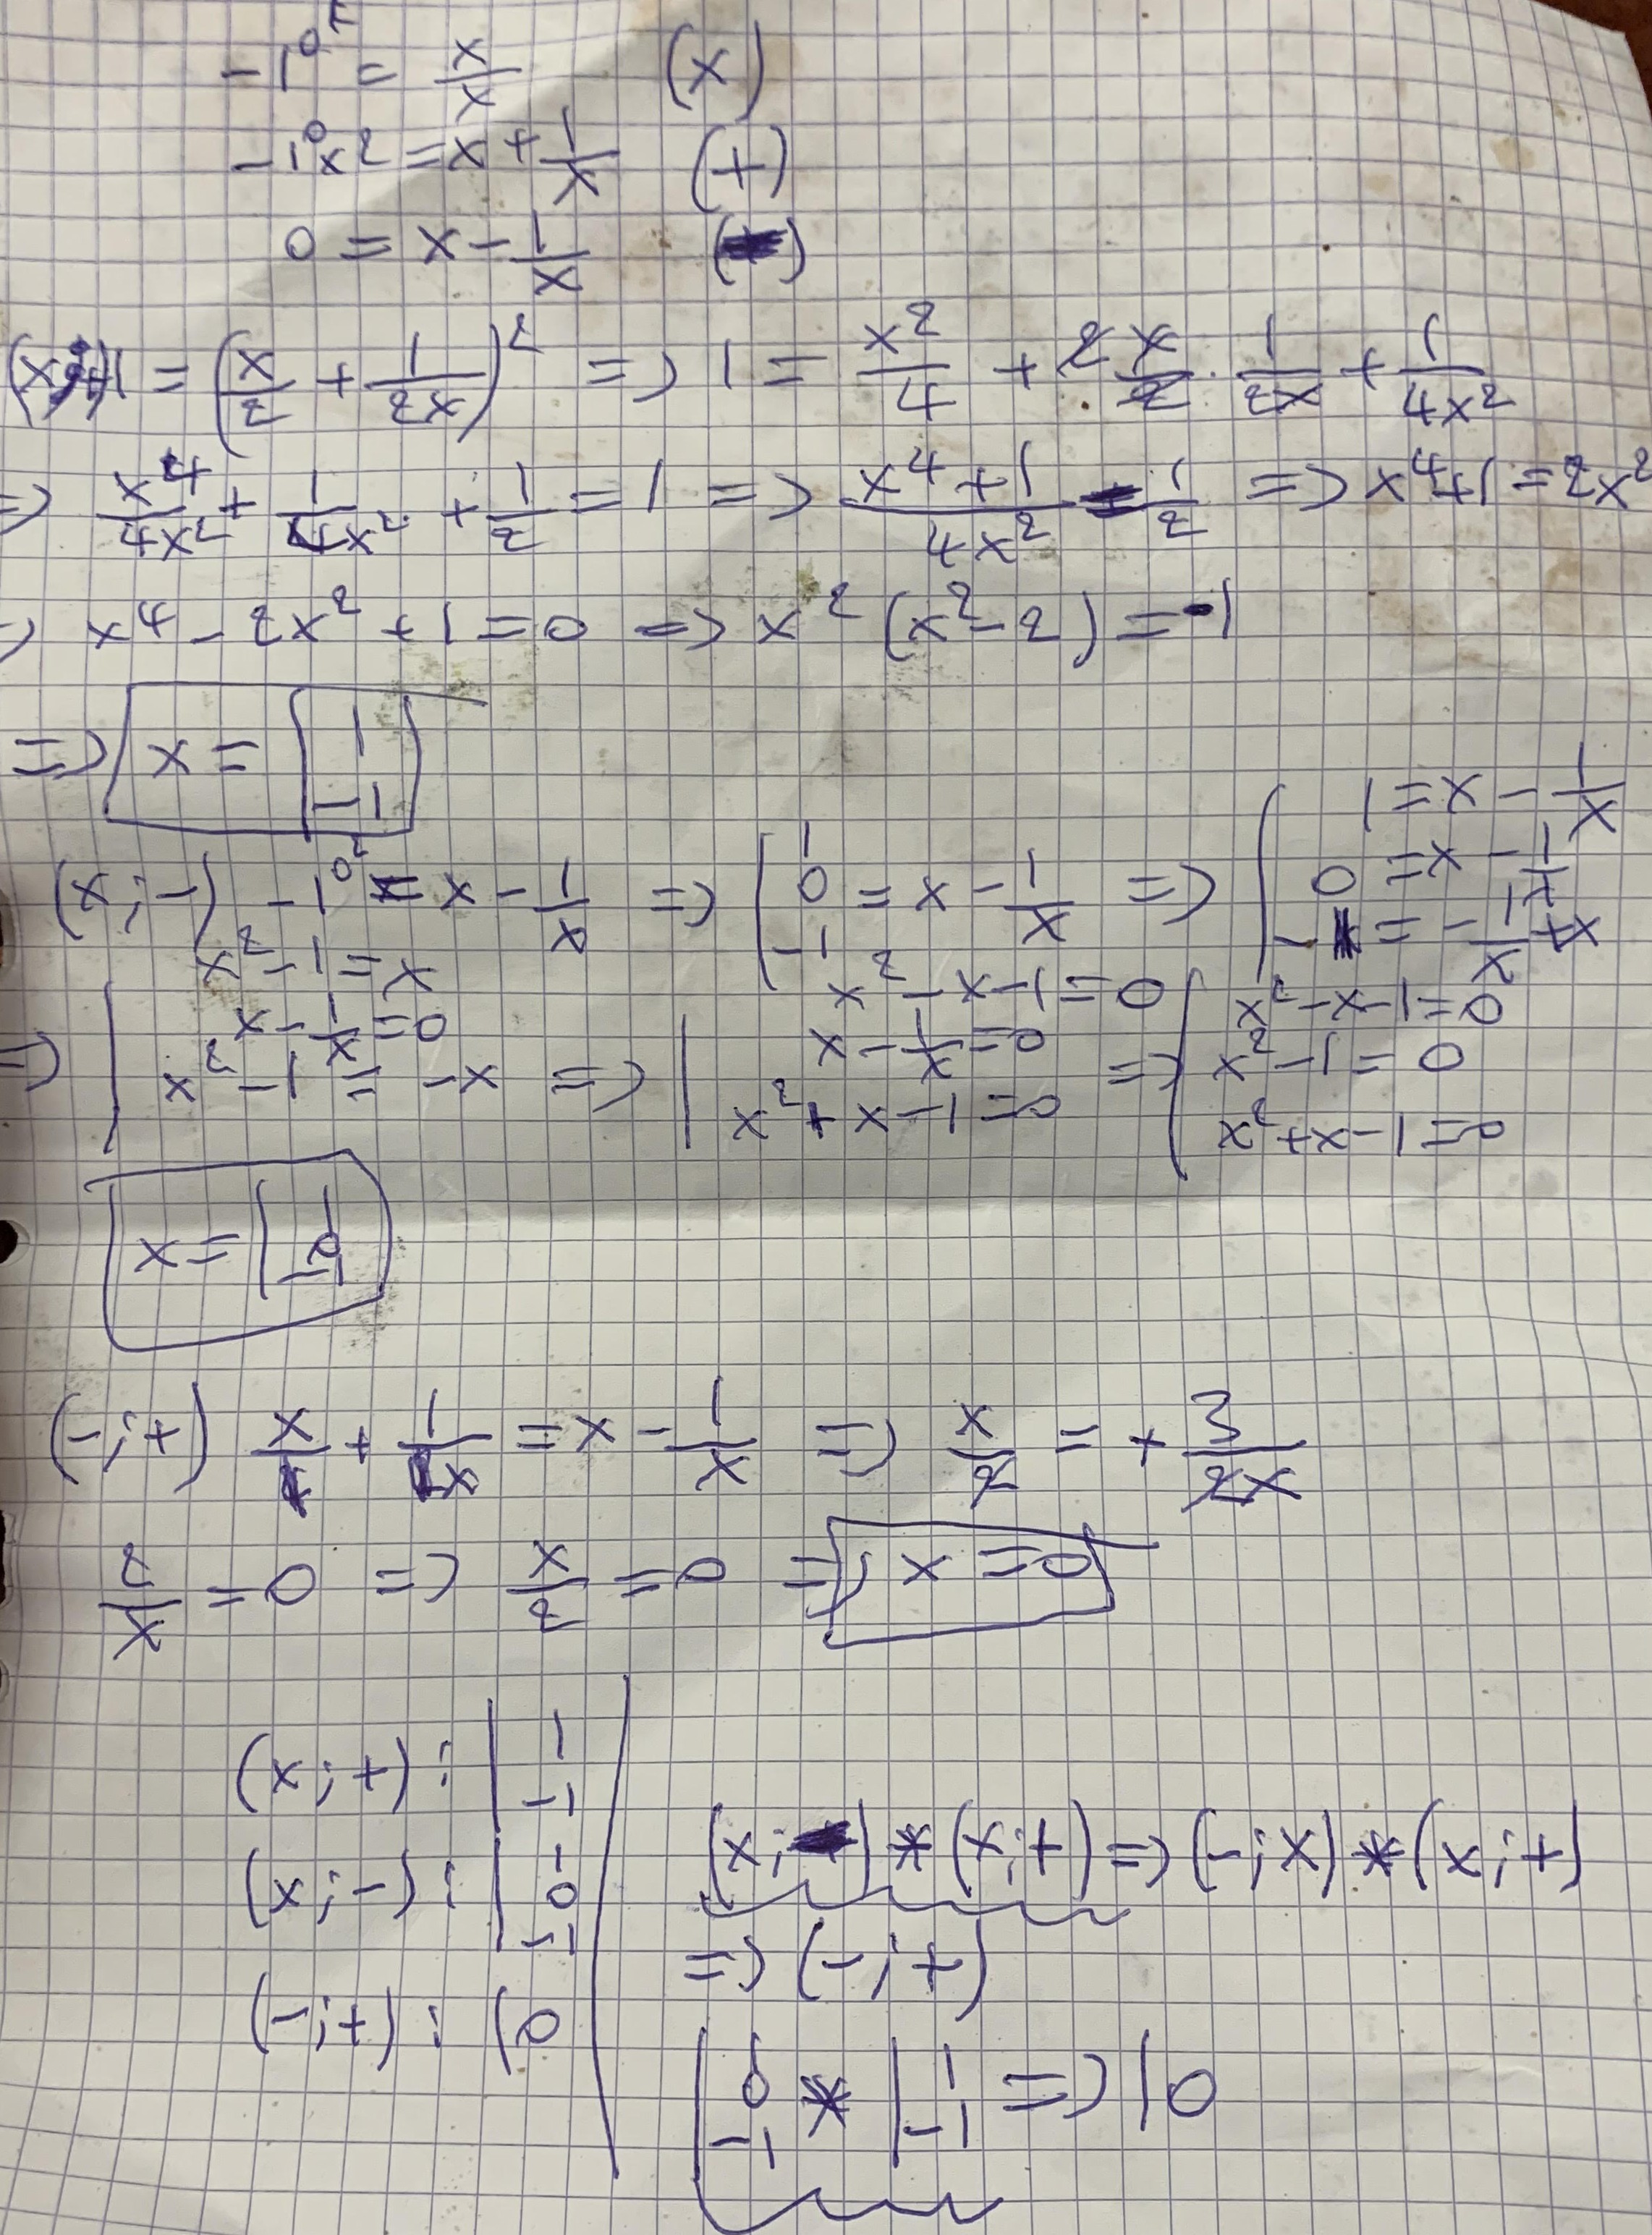 -1^0^r = x/x (x)
-1^0 x 2 = x + 1/x (+)
0 = x - 1/x ( )
1 = (x/2 + 1/2x)^2 => 1 = x^2/4 + 2 x/2 · 1/2x + 1/4x^2
=> x^4/4x^2 + 1/4x^2 + 1/2 = 1 => x^4+1/4x^2 = 1/2 => x^4+1 = 2x^2
=> x^4 - 2x^2 + 1 = 0 => x^2 (x^2 - 2) = -1
=> x = [1 -1
(x;-) -1^0^2 = x - 1/x => [1 0 -1 = x - 1/x => [1 = x - 1/x
0 = x - 1/x
- = x - 1/x
=> [x^2 - 1 = x
x - 1/x = 0
x^2 - 1 = -x
=> [x^2 - x - 1 = 0
x - 1/x = 0
x^2 + x - 1 = 0
=> [x^2 - x - 1 = 0
x^2 - 1 = 0
x^2 + x - 1 = 0
x = [1 0 -1
(-;+) x/ + 1/ x = x - 1/x => x/2 = + 3/2x
2/x = 0 => x/2 = 0 => x = 0
(x;+) : [1 -1
(x;-) : [1 0 -1
(-;+) : (0
(x; ) * (x;+) => (-;x) * (x;+)
=> (-;+)
[1 0 -1 * [1 -1 => |0